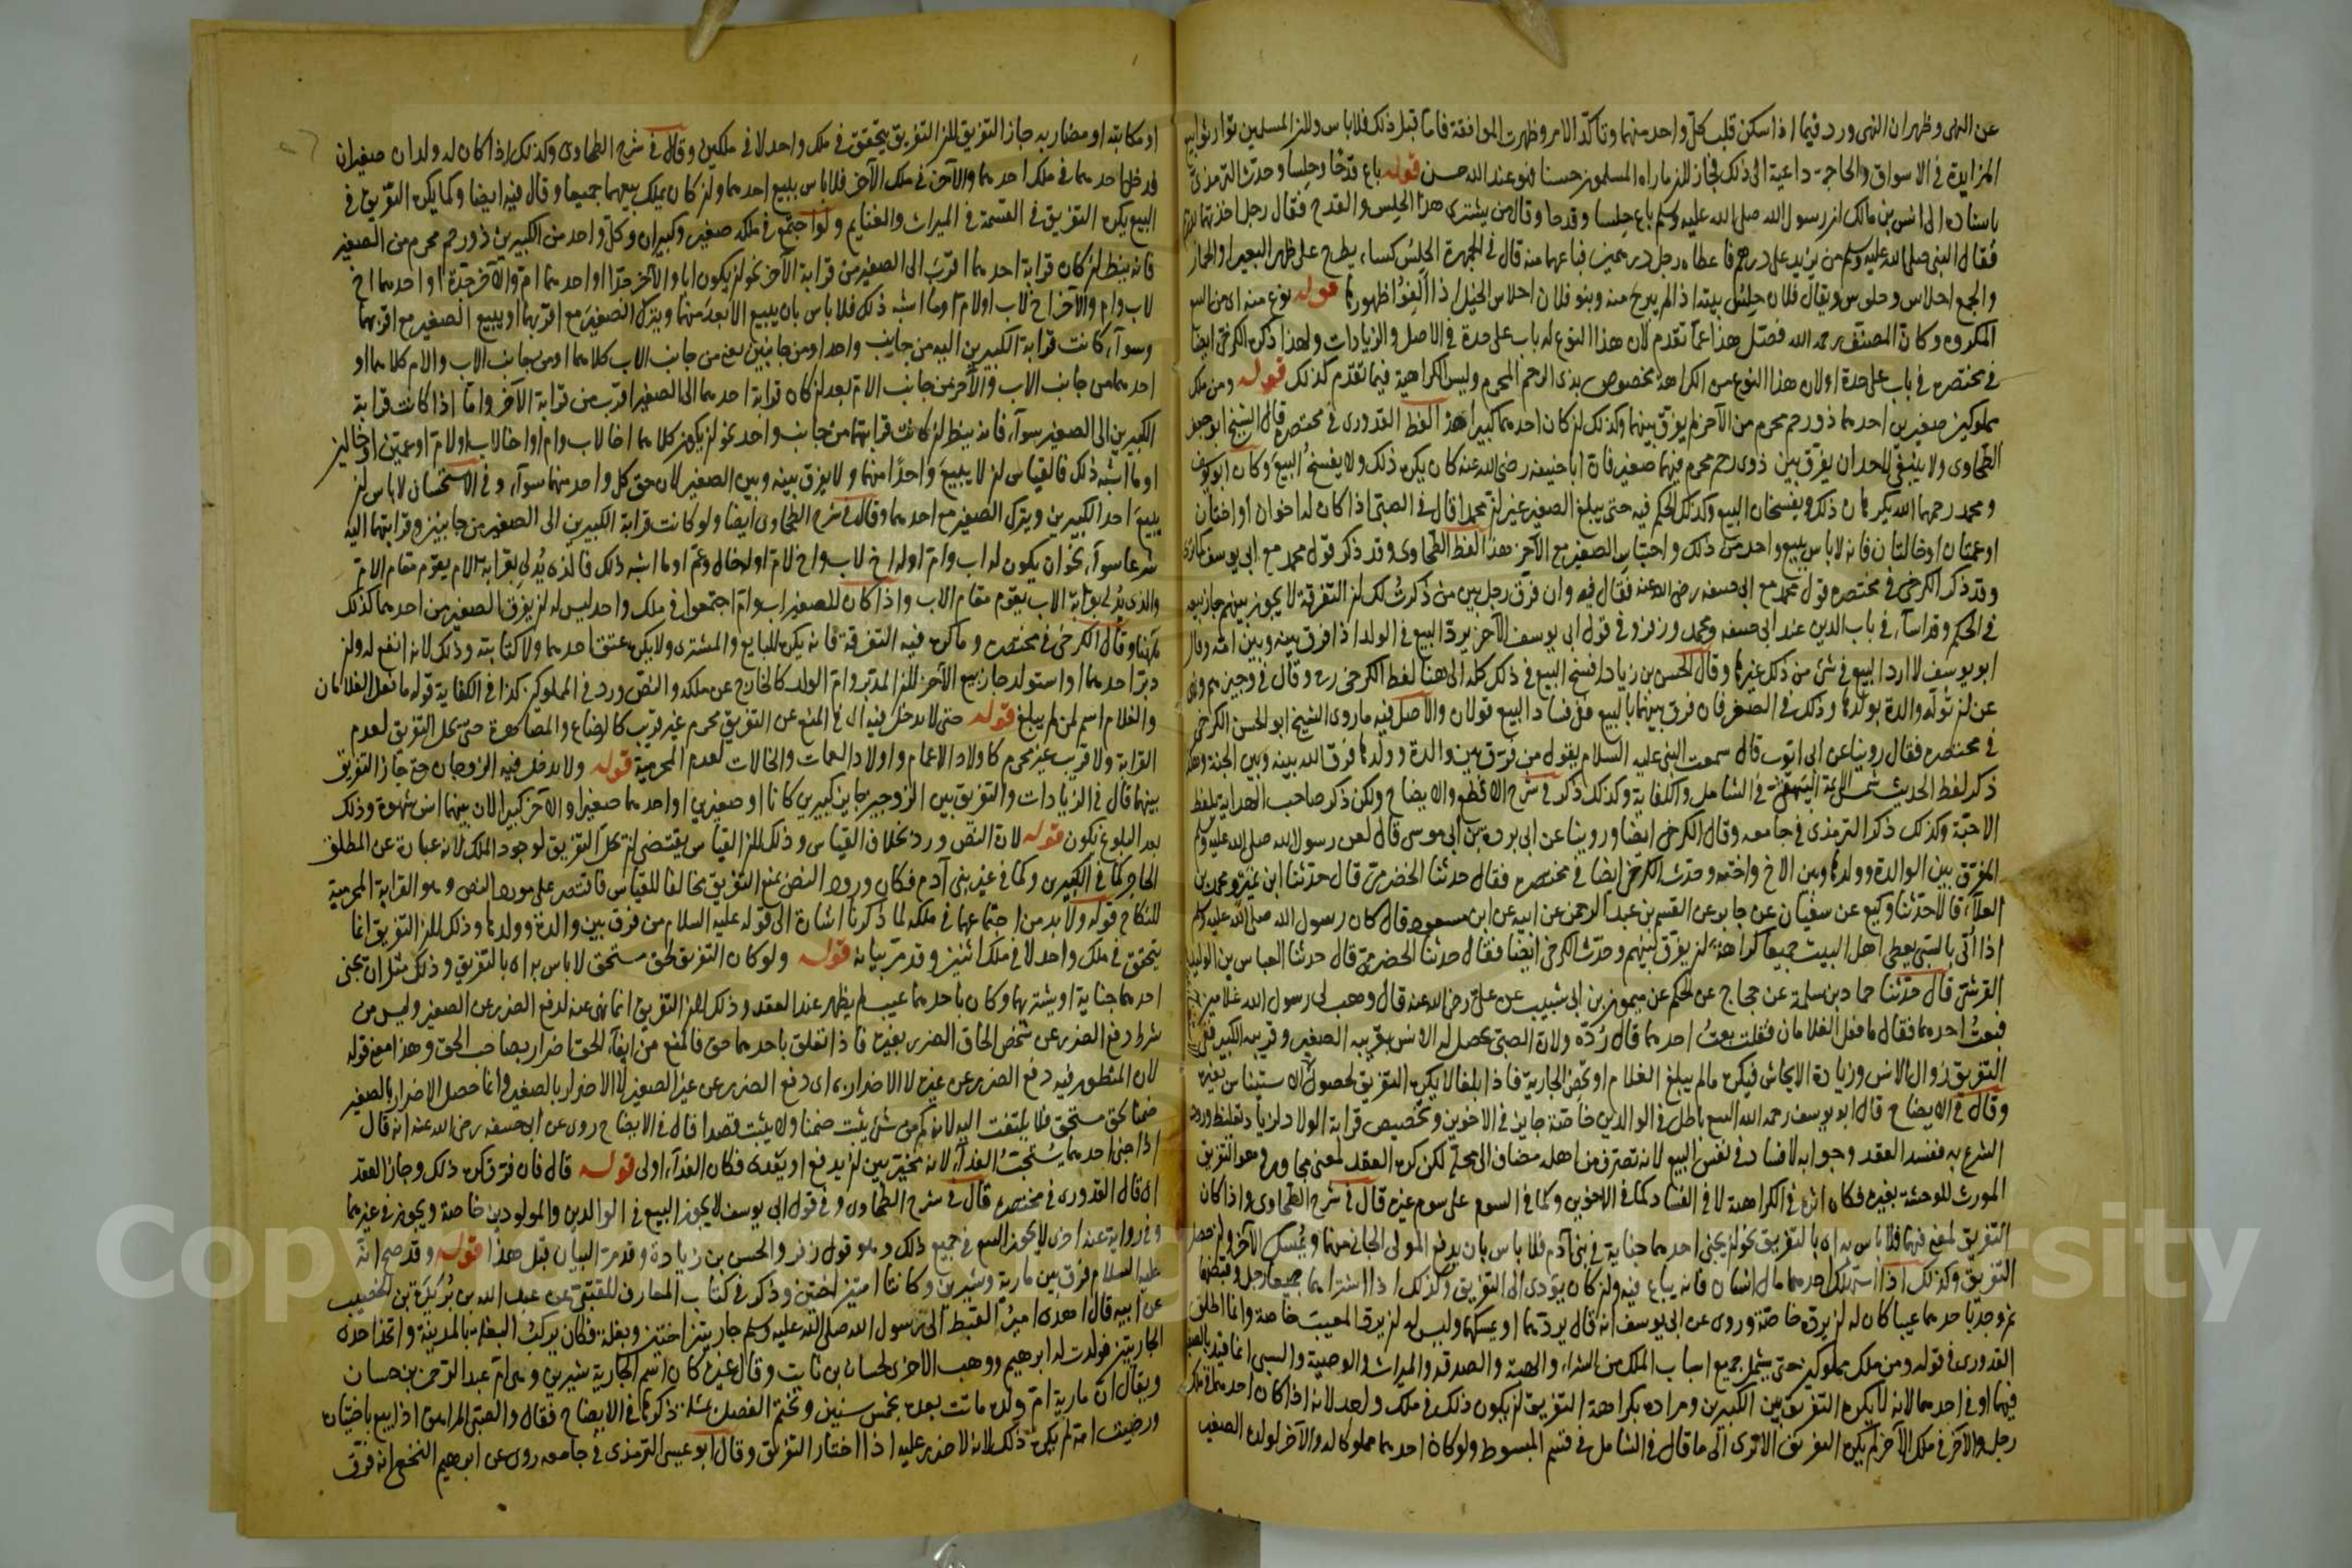 عن النهى وظهر ان النهى ورد فيما اذا سكن قلب كل واحد منهما وتاكد الامر وظهرت الموافقة فاما قبل ذلك فلا باس ولان المسلمين توارثوا بيع
المزايدة فى الاسواق والحاجة داعية الى ذلك فجاز لان ماراه المسلمون حسنا فهو عند الله حسن قوله باع قدحا وحلسا وحدث الترمذى
باسناده الى انس بن مالك ان رسول الله صلى الله عليه وسلم باع حلسا وقدحا وقال من يشترى هذا الحلس والقدح فقال رجل اخذتهما بدرهم
فقال النبى صلى الله عليه وسلم من يزيد على درهم فاعطاه رجل درهمين فباعهما منه قال فى الجمهرة الحلس كساء يطرح على ظهر البعير او الحمار
والجمع احلاس وحلوس ويقال فلان حلس بيته اذا لم يبرح منه وبنو فلان احلاس الخيل اذا الفوا ظهورها قوله نوع منه اى من البيع
المكروه وكان المصنف رحمه الله فصل هذا عما تقدم لان هذا النوع له باب على حدة فى الاصل والزيادات ولهذا ذكره الكرخى ايضا
فى مختصره فى باب على حدة اولان هذا النوع من الكراهة مخصوص بذى الرحم المحرم وليس الكراهية فيما تقدم كذلك قوله ومن ملك
مملوكين صغيرين احدهما ذو رحم محرم من الآخر لم يفرق بينهما وكذلك ان كان احدهما كبيرا هذا لفظ القدورى فى مختصره قال الشيخ ابو جعفر
الطحاوى ولا ينبغى لاحد ان يفرق بين ذوى رحم محرم فيهما صغير فان ابا حنيفه رضى الله عنه كان يكره ذلك ولا يفسخ البيع وكان ابو يوسف
ومحمد رحمهما الله يكرهان ذلك ويفسخان البيع وكذلك الحكم فيه حتى يبلغ الصغير غير ان محمدا قال فى الصبى اذا كان له اخوان او اختان
او عمتان او خالتان فانه لا باس ببيع واحد من ذلك واحتباس الصغير مع الآخر هذا لفظ الطحاوى وقد ذكر قول محمد مع ابى يوسف كما ترى
وقد ذكر الكرخى فى مختصره قول محمد مع ابى حنيفه رضى الله عنه فقال فيه وان فرق رجل بين من ذكرت لك ان التفرقة لا يجوز بينهم جاز بيعه
فى الحكم وقد اساء فى باب الدين عند ابى حنيفه ومحمد وزفر وفى قول ابى يوسف الآخر يرد البيع فى الولد اذا فرق بينه وبين امه وقال
ابو يوسف لا ارد البيع فى شئ من ذلك غيرها وقال الحسن بن زياد افسخ البيع فى ذلك كله الى هنا لفظ الكرخى ره وقال فى وجيزهم ونهى
عن ان توله والدة بولدها وذلك فى الصغر فان فرق بينهما بالبيع ففى فساد البيع قولان والاصل فيه ماروى الشيخ ابو الحسن الكرخى
فى مختصره فقال روينا عن ابى ايوب قال سمعت النبى عليه السلام يقول من فرق بين والدة وولدها فرق الله بينه وبين الجنة وهكذا
ذكر لفظ الحديث شمس الائمة البيهقى فى الشامل والكفاية وكذلك ذكر فى شرح الاقطع والايضاح ولكن ذكر صاحب الهداية بلفظ
الاحبة وكذلك ذكر الترمذى فى جامعه وقال الكرخى ايضا وروينا عن ابى بردة بن ابى موسى قال لعن رسول الله صلى الله عليه وسلم
المفرق بين الوالدة وولدها وبين الاخ واخته وحدث الكرخى ايضا فى مختصره فقال حدثنا الحضرمى قال حدثنا ابن نمير ومحمد بن
العلاء قالا حدثنا وكيع عن سفيان عن جابر عن القسم بن عبد الرحمن عن ابيه عن ابن مسعود قال كان رسول الله صلى الله عليه وسلم
اذا اتى بالسبى يعطى اهل البيت جميعا كراهة ان يفرق بينهم وحدث الكرخى ايضا فقال حدثنا الحضرمى قال حدثنا العباس بن الوليد
القرشى قال حدثنا حماد بن سلمة عن حجاج عن الحكم عن ميمون بن ابى شبيب عن على رضى الله عنه قال وهب لى رسول الله غلامين
فبعت احدهما فقال ما فعل الغلامان فقلت بعت احدهما قال رده ولان الصبى يحصل له الانس بقريبه الصغير وقريبه الكبير ففى
التفريق زوال الانس وزيادة الايحاش فيكره مالم يبلغ الغلام او تحض الجارية فاذا بلغا لا يكره التفريق لحصول الاستيناس بغيره
وقال فى الايضاح قال ابو يوسف رحمه الله البيع باطل فى الوالدين خاصة جايز فى الاخوين وتخصيص قرابة الولاد لزيادة تغليظ ورود
الشرع به ففسد العقد وجوابه لا فساد فى نفس البيع لانه تصرف من اهله مضاف الى محله لكن كره العقد لمعنى مجاور وهو التفريق
المورث للوحشة بغيره فكان اثره فى الكراهة لا فى الفساد كما فى الاخوين وكما فى السوم على سوم غيره قال فى شرح الطحاوى واذا كان
التفريق لمعنى فيهما فلا باس به اى بالتفريق نحو ان يجنى احدهما جناية فى بنى آدم فلا باس بان يدفع المولى الجانى منهما ويمسك الآخر وان حصل
التفريق وكذلك اذا استهلك احدهما مال انسان فانه يباع فيه وان كان يؤدى الى التفريق وكذلك اذا اشتراهما جميعا رجل وقبضهما
ثم وجد باحدهما عيبا كان له ان يرده خاصة وروى عن ابى يوسف انه قال يردهما او يمسكهما وليس له ان يرد المعيب خاصة وانما اطلق
القدورى فى قوله ومن ملك مملوكين حتى يشمل جميع اسباب الملك من الشراء والهبة والصدقة والميراث والوصية والسبى انما قيد بالصغر
فيهما او فى احدهما لانه لا يكره التفريق بين الكبيرين ومراده بكراهة التفريق ان يكون ذلك فى ملك واحد لانه اذا كان احدهما فى ملك
رجل والآخر فى ملك الآخر لم يكره التفريق الا ترى الى ما قال فى الشامل فى قسم المبسوط ولو كان احدهما مملوكا له والآخر لولده الصغير
او مكاتبه او مضاربه جاز التفريق لان التفريق يتحقق فى ملك واحد لا فى ملكين وقال فى شرح الطحاوى وكذلك اذا كان له ولدان صغيران
فدخل احدهما فى ملك احدهما والآخر فى ملك الآخر فلا باس ببيع احدهما وان كان يملك بيعهما جميعا وقال فيه ايضا وكما يكره التفريق فى
البيع يكره التفريق فى القسمة فى الميراث والغنايم ولو اجتمع فى ملكه صغير وكبيران وكل واحد من الكبيرين ذو رحم محرم من الصغير
فانه ينظر ان كان قرابة احدهما اقرب الى الصغير من قرابة الآخر نحو ان يكون ابا والآخر جدا او احدهما ام والآخر جدة او احدهما اخ
لاب وام والآخر اخ لاب او لام او ما اشبه ذلك فلا باس بان يبيع الابعد منهما ويترك الصغير مع اقربهما او يبيع الصغير مع اقربهما
وسواء كانت قرابة الكبيرين اليه من جانب واحد او من جانبين يعنى من جانب الاب كلاهما او من جانب الاب والام كلاهما او
احدهما من جانب الاب والآخر من جانب الام بعد ان كان قرابة احدهما الى الصغير اقرب من قرابة الآخر واما اذا كانت قرابة
الكبيرين الى الصغير سواء فانه ينظر ان كانت قرابتهما من جانب واحد نحو ان يكون كلاهما اخا لاب وام او اخا لاب او لام او عمين او خالين
او ما اشبه ذلك فالقياس ان لا يبيع واحدا منهما ولا يفرق بينه وبين الصغير لان حق كل واحد منهما سواء وفى الاستحسان لا باس ان
يبيع احد الكبيرين ويترك الصغير مع احدهما وقال فى شرح الطحاوى ايضا ولو كانت قرابة الكبيرين الى الصغير من جانبين وقرابتهما اليه
شرعا سواء نحو ان يكون له اب وام او له اخ لاب واخ لام او له خال وعم او ما اشبه ذلك فالذى يدلى بقرابة الام يقوم مقام الام
والذى يدلى بقرابة الاب يقوم مقام الاب واذا كان للصغير اب وام اجتمعوا فى ملك واحد ليس له ان يفرق الصغير من احدهما كذلك
ههنا وقال الكرخى فى مختصره وما كره فيه التفرقة فانه يكره للبايع والمشترى ولا يكره عتق احدهما ولا كتابته وذلك لانه انفع له وان
دبر احدهما او استولد جاز بيع الآخر لان المدبر وام الولد كالخارج عن ملكه والنص ورد فى المملوكين كذا فى الكفاية قوله ما فعل الغلامان
والغلام اسم لمن لم يبلغ قوله حتى لا يدخل فيه اى فى المنع عن التفريق محرم غير قريب كالرضاع والمصاهرة حتى يحل التفريق لعدم
القرابة ولا قريب غير محرم كاولاد الاعمام واولاد العمات والخالات لعدم المحرمية قوله ولا يدخل فيه الزوجان حتى جاز التفريق
بينهما قال فى الزيادات والتفريق بين الزوجين جايز كبيرين كانا او صغيرين او احدهما صغيرا والآخر كبيرا لان بينهما انس شهوة وذلك
بعد البلوغ يكون قوله لان النص ورد بخلاف القياس وذلك لان القياس يقتضى ان يحل التفريق لوجود الملك لانه عبارة عن المطلق
الحاجز كما فى الكبيرين وكما فى غير بنى آدم فكان ورود النص بمنع التفريق مخالفا للقياس فاقتصر على مورد النص وهو القرابة المحرمية
للنكاح قوله ولا بد من اجتماعهما فى ملكه لما ذكرنا اشارة الى قوله عليه السلام من فرق بين والدة وولدها وذلك لان التفريق انما
يتحقق فى ملك واحد لا فى ملك اثنين وقد مر بيانه قوله ولو كان التفريق لحق مستحق لا باس به اى بالتفريق وذلك مثل ان يجنى
احدهما جناية او يشتريهما وكان باحدهما عيب لم يظهر عند العقد وذلك لان التفريق انما نهى عنه لدفع الضرر عن الصغير وليس من
شرط دفع الضرر عن شخص الحاق الضرر بغيره فاذا تعلق باحدهما حق فالمنع من ايفاء الحق اضرار بصاحب الحق وهذا معنى قوله
لان المنظور فيه دفع الضرر عن غيره لا الاضرار به اى دفع الضرر عن غير الصغير لا الاضرار بالصغير وانما حصل الاضرار بالصغير
ضمنا لحق مستحق فلا يلتفت اليه لانه كم من شئ يثبت ضمنا ولا يثبت قصدا قال فى الايضاح روى عن ابى حنيفه رضى الله عنه انه قال
اذا جنى احدهما يستحب الفداء لانه مخير بين ان يدفع او يفدى فكان الفداء اولى قوله قال فان فرق كره ذلك وجاز العقد
اى قال القدورى فى مختصره قال فى شرح الطحاوى وفى قول ابى يوسف لا يجوز البيع فى الوالدين والمولودين خاصة ويجوز فى غيرهما
وفى رواية عنه اخرى لا يجوز البيع فى جميع ذلك وهو قول زفر والحسن بن زياد وقد مر البيان قبل هذا قوله وقد صح انه
عليه السلام فرق بين مارية وشيرين وكانتا امتين اختين وذكر فى كتاب المعارف للقتبى عن عبد الله بن بريدة بن الخصيب
عن ابيه قال اهدى امير القبط الى رسول الله صلى الله عليه وسلم جاريتين اختين وبغلة فكان يركب البغلة بالمدينة واتخذ احدى
الجاريتين فولدت له ابرهيم ووهب الاخرى لحسان بن ثابت وقال غيره كان اسم الجارية شيرين وهى ام عبد الرحمن بن حسان
ويقال ان مارية ام ولده ماتت بعده بخمس سنين ونختم الفصل بمسئلة ذكرها فى الايضاح فقال والصبى المراهق اذا بيع باختياره
ورضيت امه لم يكره ذلك لانه لا ضرر عليه اذا اختار التفريق وقال ابو عيسى الترمذى فى جامعه روى عن ابرهيم النخعى انه فرق
Copyright © King Saud University